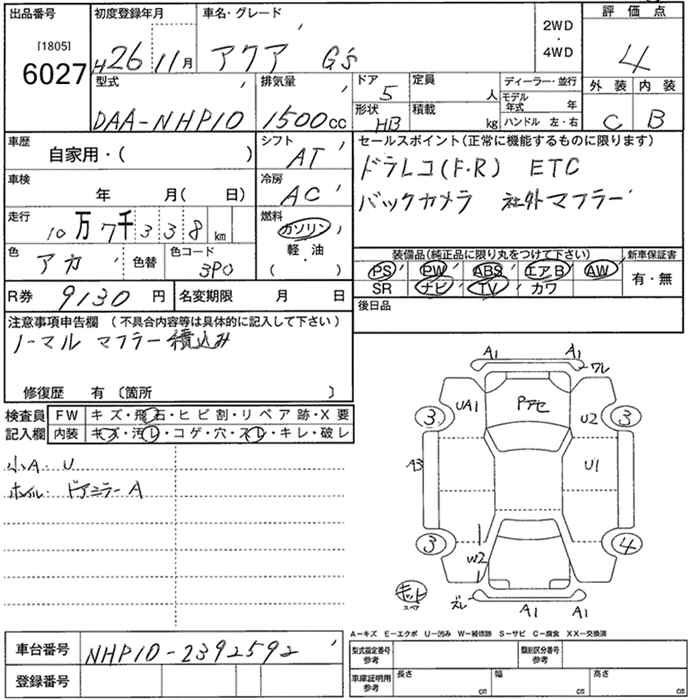 出品番号 初度登録年月 車名・グレード 2WD ・ 4WD 評価点
[1805]
6027 H26 11月 アクア G's 4
型式 排気量 ドア 5 定員 人 ディーラー・並行 外装 内装
DAA-NHP10 1500cc 形状 HB 積載 kg モデル年式 年 C B
ハンドル 左・右
車歴 シフト セールスポイント(正常に機能するものに限ります)
自家用・( ) AT ドラレコ(F・R) ETC
車検 冷房 バックカメラ 社外マフラー
年 月( 日) AC
走行 燃料
10万7千338km ガソリン
色 色替 色コード 軽・油 装備品(純正品に限り丸をつけて下さい) 新車保証書
アカ 3P0 ( ・ ) PS PW ABS エアB AW 有・無
SR ナビ TV カワ
R券 9130円 名変期限 月 日 後日品
注意事項申告欄 (不具合内容等は具体的に記入して下さい)
ノーマル マフラー 積込み
修復歴 有 〔箇所 〕
検査員 FW キズ・飛石・ヒビ割・リペア跡・X要
記入欄 内装 キズ・汚レ・コゲ・穴・スレ・キレ・破レ
小A U
ホイル・ドアミラーA
A1 A1
ワレ
UA1 Pアセ
3 U2 3
A3 U1
3 4
W2
キット ズレ
スペア A1 A1
A−キズ E−エクボ U−凹み W−補修跡 S−サビ C−腐食 XX−交換済
車台番号 NHP10-2392592 型式指定番号 参考 類別区分番号 参考
登録番号 車庫証明用 参考 長さ cm 幅 cm 高さ cm